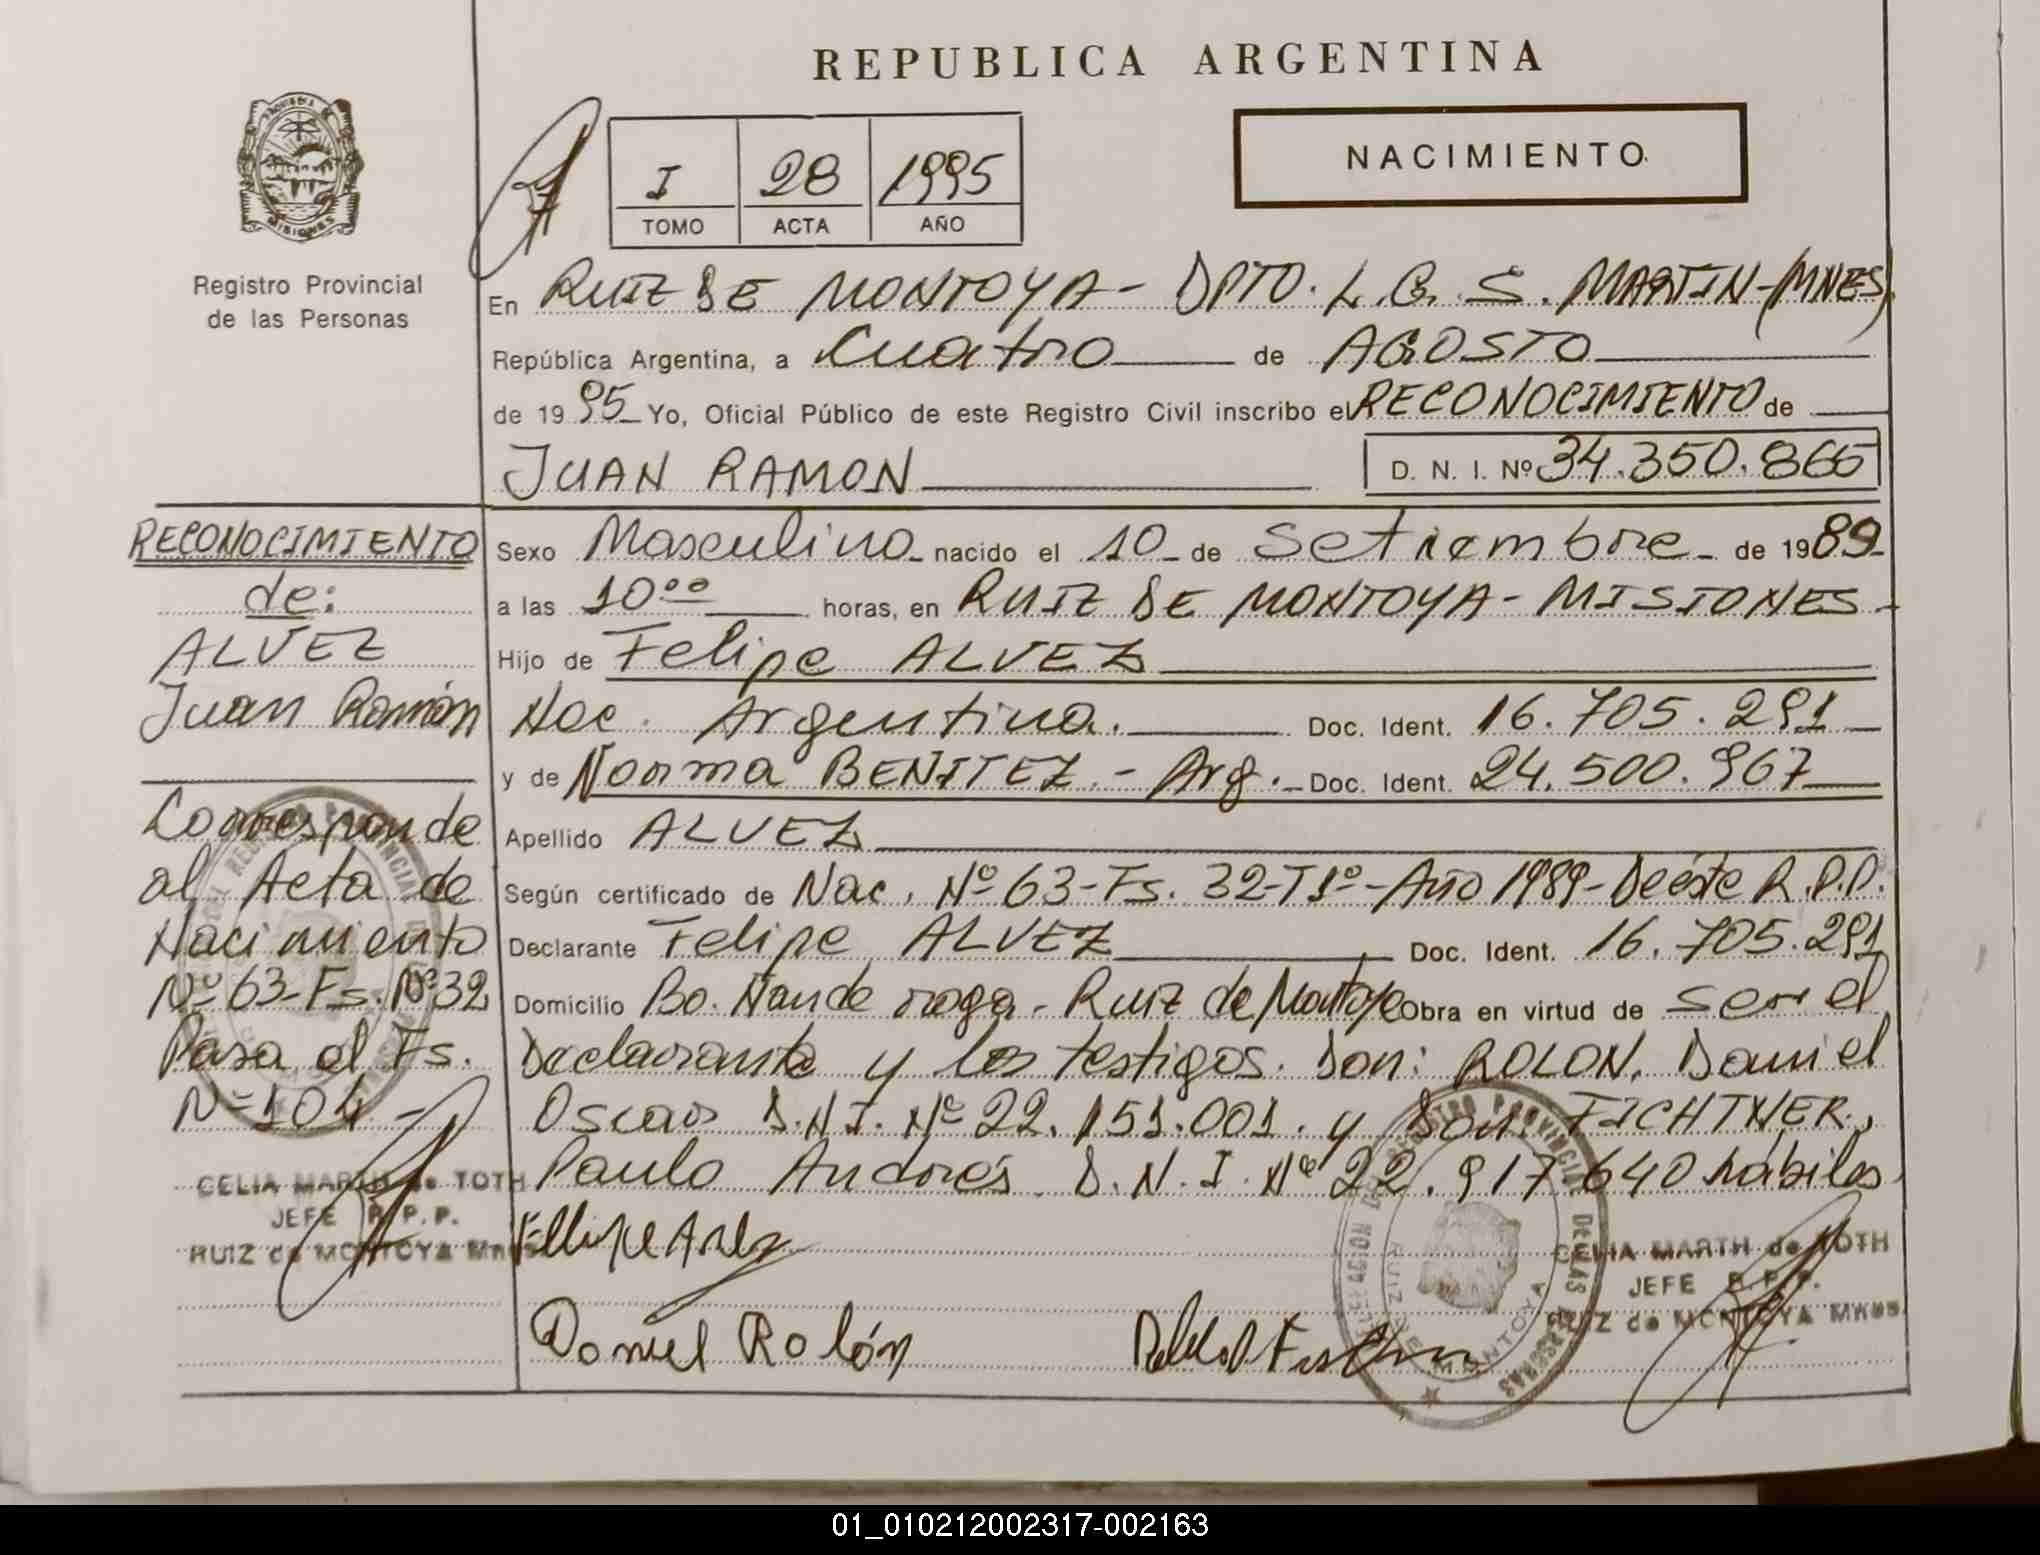 REPUBLICA ARGENTINA
NACIMIENTO
I 28 1995
TOMO ACTA AÑO
Registro Provincial
de las Personas
En RUIZ DE MONTOYA - DPTO. L.G.S. MARTIN-(MNES)
República Argentina, a Cuatro de AGOSTO
de 1995 Yo, Oficial Público de este Registro Civil inscribo el RECONOCIMIENTO de
JUAN RAMON D. N. I. Nº 34.350.866
RECONOCIMIENTO
de:
ALVEZ
Juan Ramón
Corresponde
al Acta de
Nacimiento
Nº 63-Fs. Nº 32
Pasa al Fs.
Nº 104-
CELIA MARTH de TOTH
JEFE R.P.P.
RUIZ de MONTOYA Mnes
Sexo Masculino nacido el 10 de Setiembre de 1989
a las 10⁰⁰ horas, en RUIZ DE MONTOYA - MISIONES-
Hijo de Felipe ALVEZ
Nac. Argentina. Doc. Ident. 16.705.291
y de Norma BENITEZ.- Arg. Doc. Ident. 24.500.967
Apellido ALVEZ
Según certificado de Nac. Nº 63-Fs. 32-Tº1º-Año 1989-De éste R.P.P.
Declarante Felipe ALVEZ Doc. Ident. 16.705.291
Domicilio Bo. Ñande roga - Ruiz de Montoya Obra en virtud de ser el
Declarante y los testigos. Don: ROLON, Daniel
Oscar D.N.I. Nº 22.151.001. y Don: FICHTNER,
Paulo Andrés D.N.I. Nº 22.917.640 hábiles.
Daniel Rolón
CELIA MARTH de TOTH
JEFE R.P.P.
RUIZ de MONTOYA Mnes
01_010212002317-002163